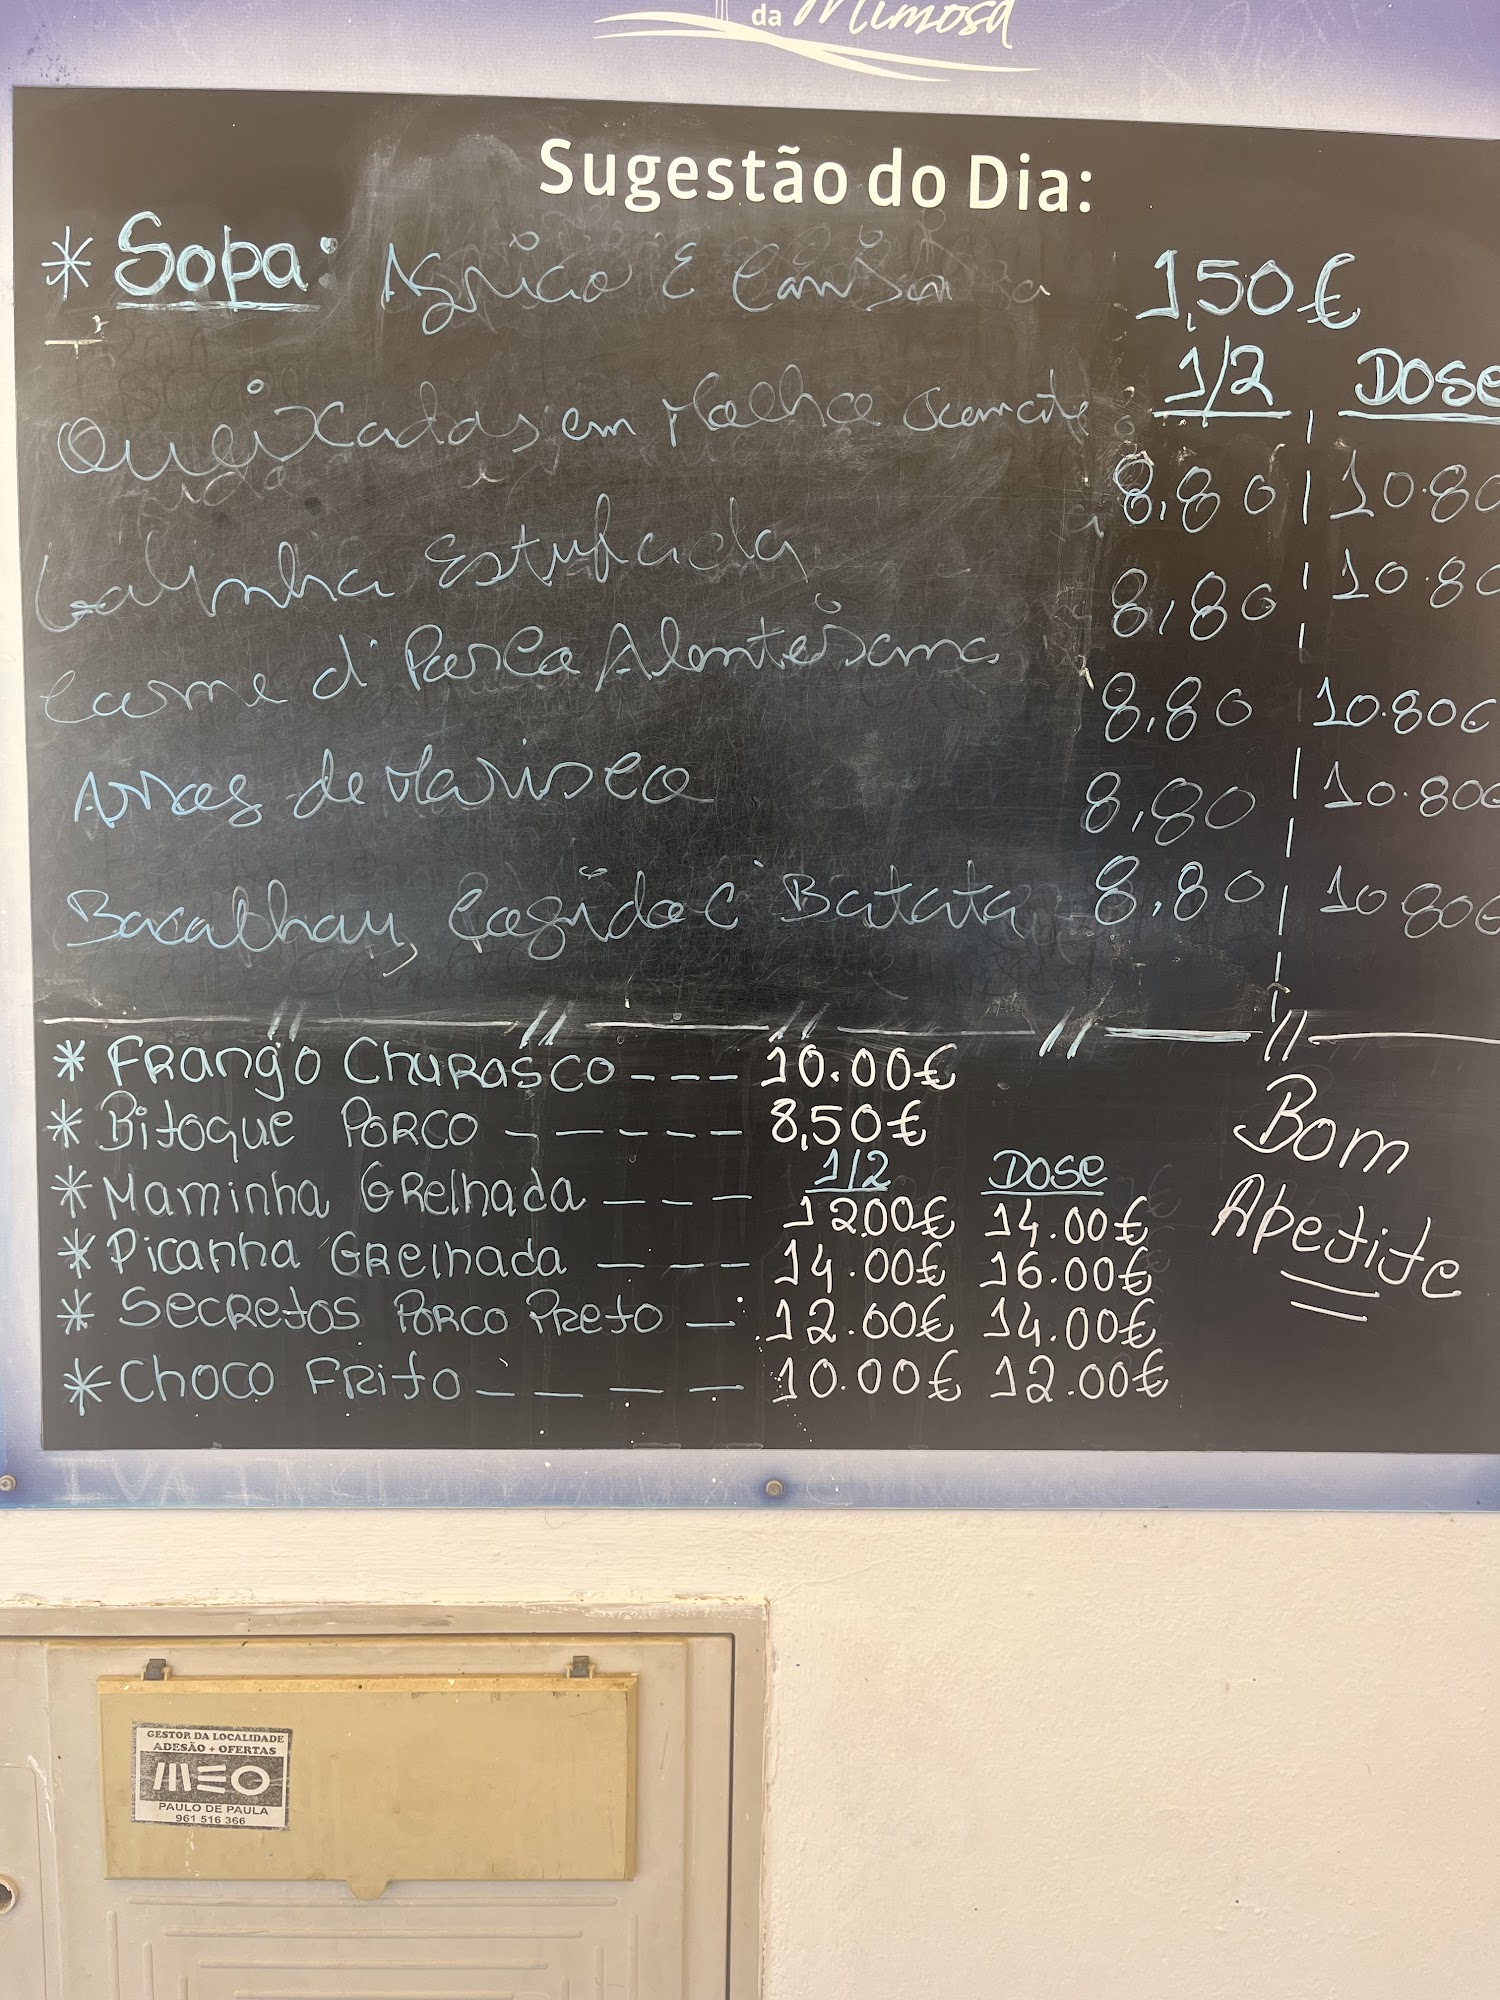 da Mimosa
Sugestão do Dia:
* Sopa: Agrião E Canja 1,50€
1/2 Dose
Queixadas em Molho tomate 8,80 10.80
Galinha Estufada 8,80 10.80
Carne d' Porco Alentejana 8,80 10.80€
Arroz de Marisco 8,80 10.80€
Bacalhau Cozido c' Batata 8,80 10.80€
* Frango Churasco --- 10.00€
* Bitoque Porco ----- 8,50€
1/2 Dose
* Maminha Grelhada --- 12.00€ 14.00€
* Picanha Grelhada --- 14.00€ 16.00€
* Secretos Porco Preto - 12.00€ 14.00€
* Choco Frito ----- 10.00€ 12.00€
Bom
Apetite
GESTOR DA LOCALIDADE
ADESÃO + OFERTAS
MEO
PAULO DE PAULA
961 516 366